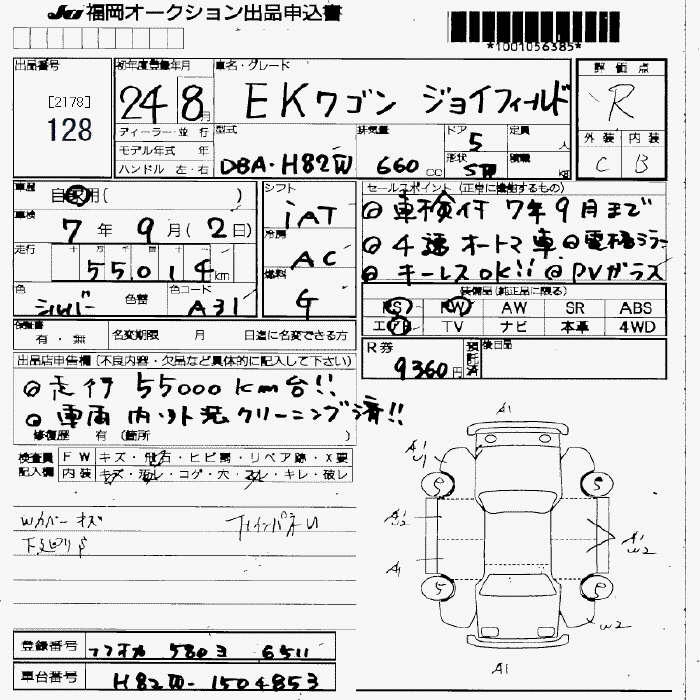 JU 福岡オークション出品申込書
*1001056385*
出品番号
[2178]
128
初年度登録年月
24 8月
車名・グレード
EKワゴン ジョイフィールド
評価点
R
外装 内装
C B
ディーラー・並行
モデル年式 年
ハンドル 左・右
型式
DBA-H82W
排気量
660 cc
ドア 5
形状 5W
定員 人
積載 kg
車歴
自家用( )
車検
7年9月(2日)
走行
55,014km
色
シルバー 色替
色コード
A31
シフト
iAT
冷房
AC
燃料
G
セールスポイント(正常に機能するもの)
◎車検付 7年9月まで
◎4速オートマ車 ◎電格ミラー
◎キーレスOK!! ◎PVガラス
装備品(純正品に限る)
PS PW AW SR ABS
エアB TV ナビ 本革 4WD
有・無 名変期限 月 日迄に名変できる方
R券
9360円
預託済
後日品
出品店申告欄(不良内容・欠品など具体的に記入して下さい)
◎走行 55000km台!!
◎車両 内・外装クリーニング済!!
修復歴 有 (箇所 )
検査員 FW キズ・飛石・ヒビ・リペア跡・X要
記入欄 内装 キズ・汚レ・コゲ・穴・スレ・キレ・破レ
Wカバーキズ
下廻りS
A1
A1
U1
S S
A1
U2
A1
U2
A1
S S
U2
A1
登録番号 フクオカ 580ヨ 6511
車台番号 H82W-1504853